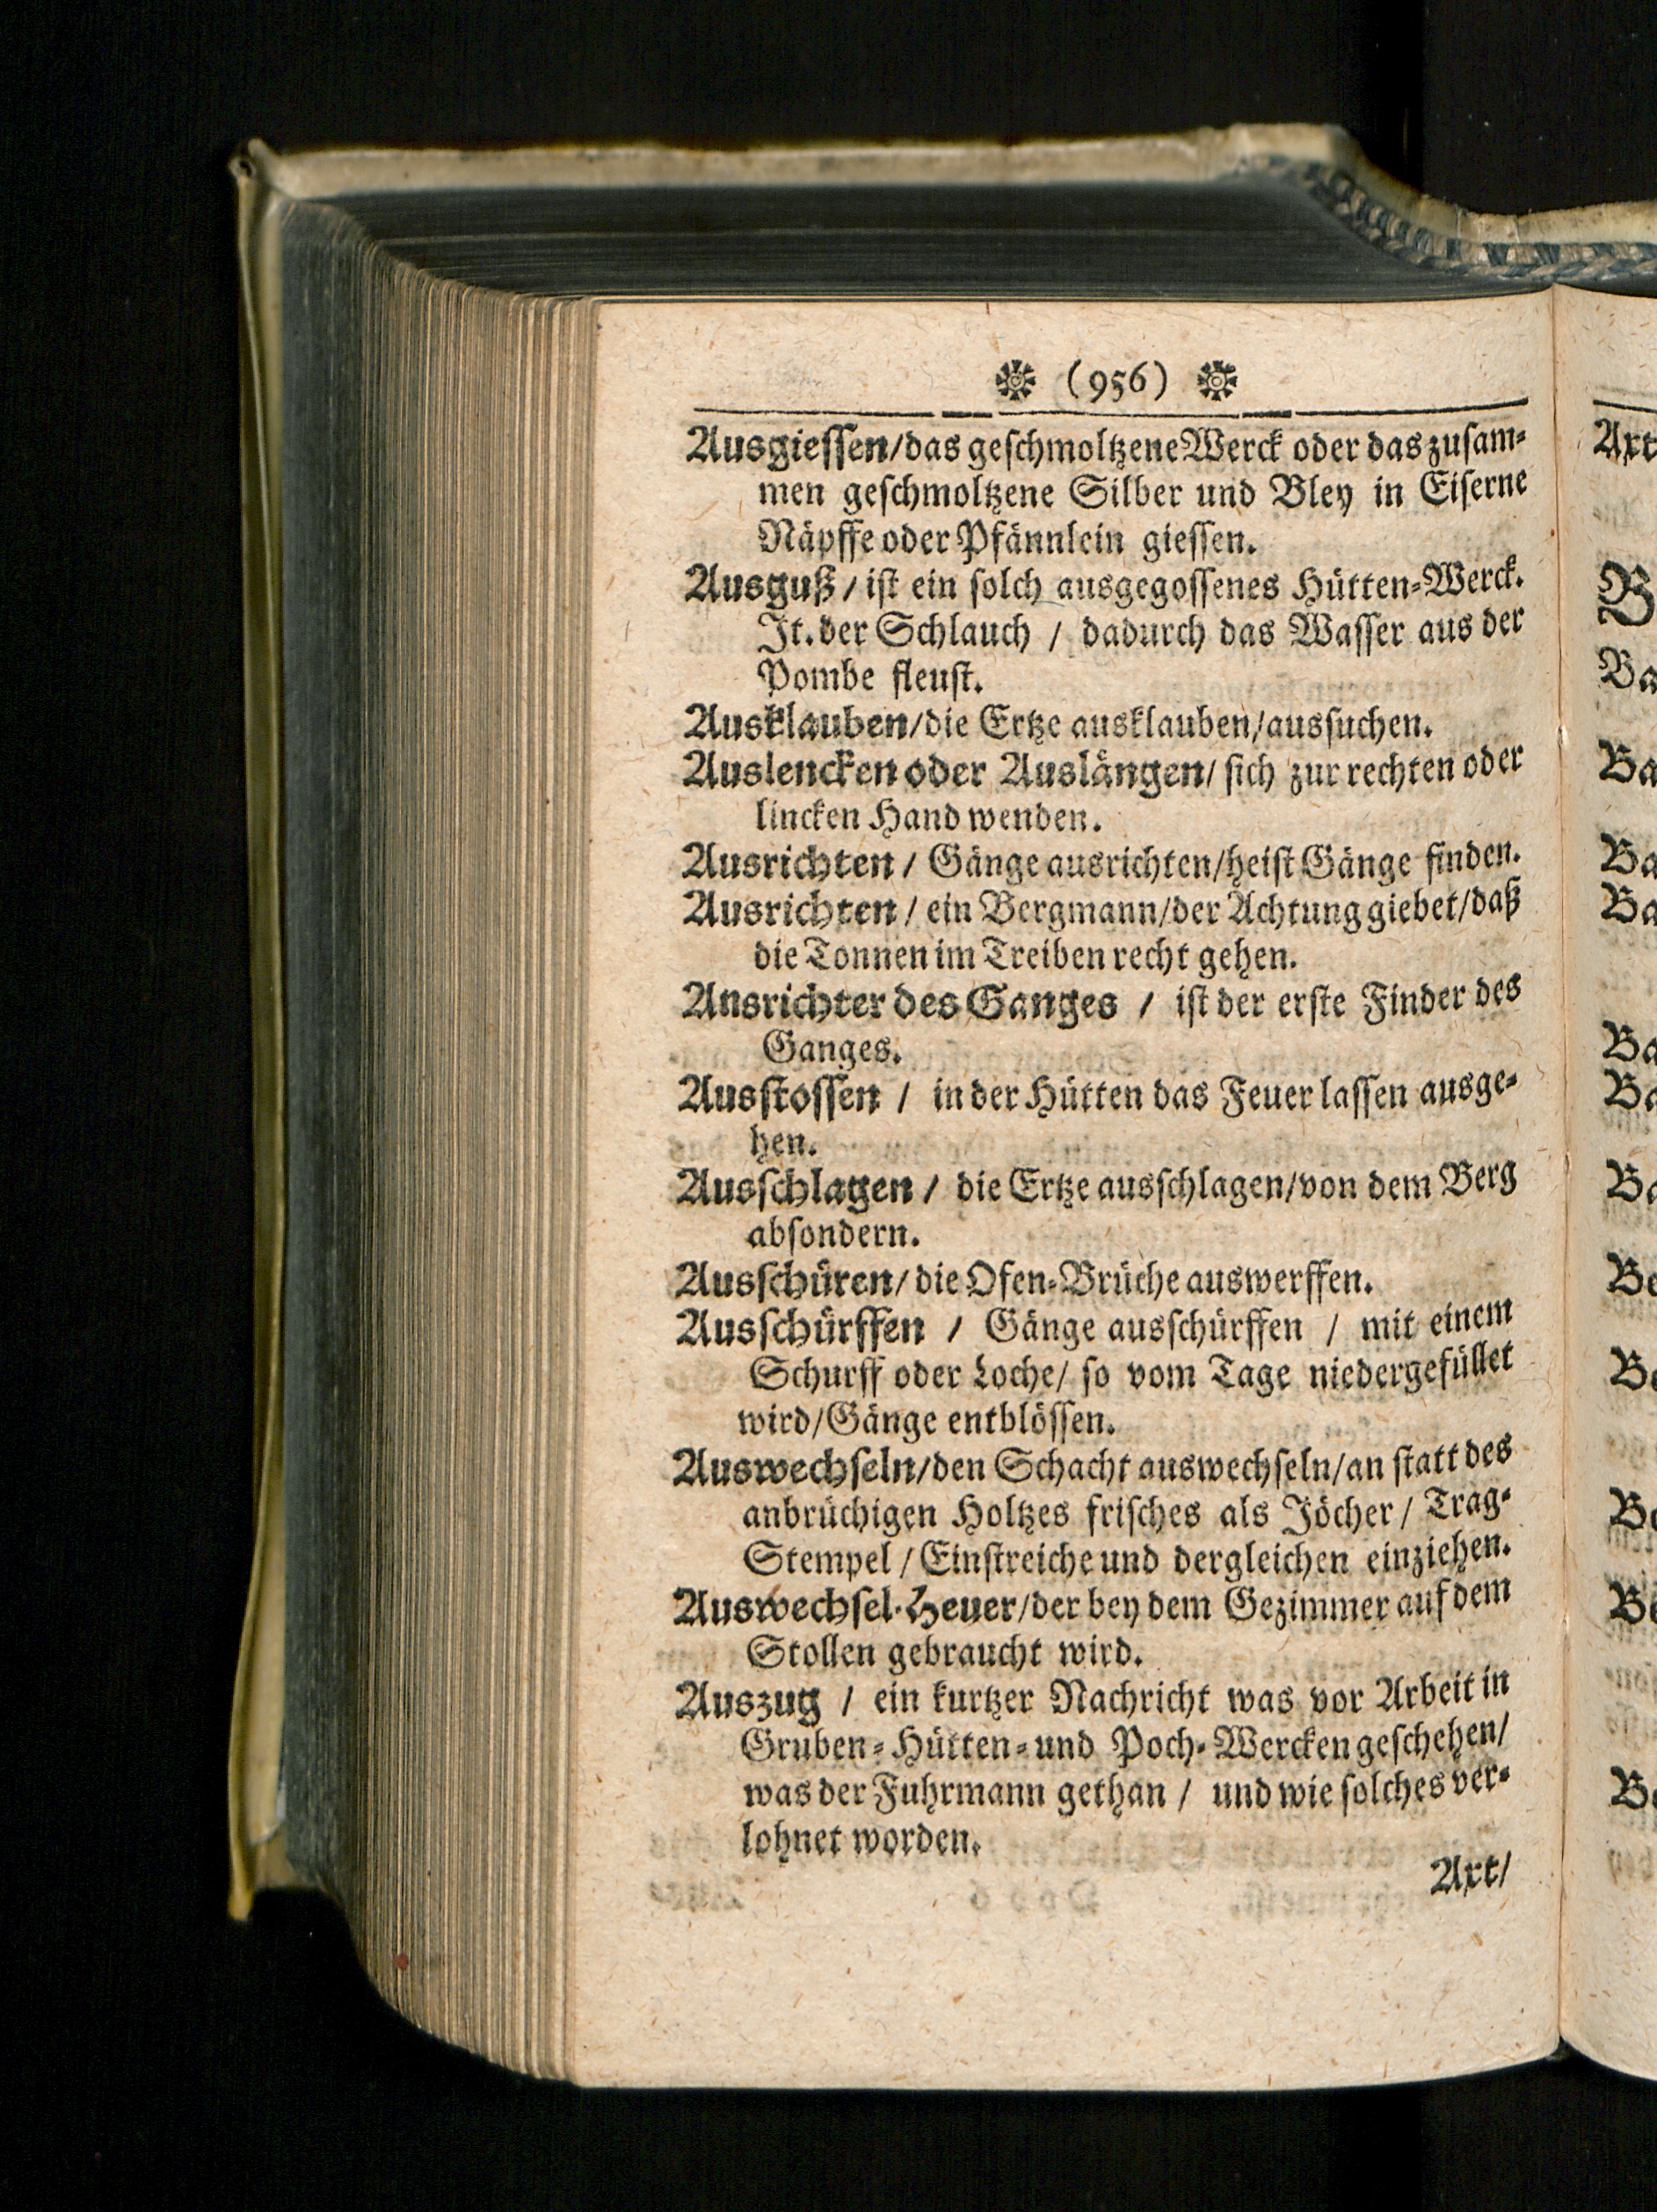 (956)
Ausgiessen/das geschmoltzene Werck oder das zusam-
men geschmoltzene Silber und Bley in Eiserne
Näpffe oder Pfännlein giessen.
Ausguß / ist ein solch ausgegossenes Hütten-Werck.
It. der Schlauch / dadurch das Wasser aus der
Pombe fleust.
Ausklauben/die Ertze ausklauben/aussuchen.
Auslencken oder Auslängen/ sich zur rechten oder
lincken Hand wenden.
Ausrichten / Gänge ausrichten/heist Gänge finden.
Ausrichten / ein Bergmann/der Achtung giebet/daß
die Tonnen im Treiben recht gehen.
Ansrichter des Ganges / ist der erste Finder des
Ganges.
Ausstossen / in der Hütten das Feuer lassen ausge-
hen.
Ausschlagen / die Ertze ausschlagen/von dem Berg
absondern.
Ausschüren/ die Ofen-Brüche auswerffen.
Ausschürffen / Gänge ausschürffen / mit einem
Schurff oder Loche/ so vom Tage niedergefüllet
wird/Gänge entblössen.
Auswechseln/den Schacht auswechseln/an statt des
anbrüchigen Holtzes frisches als Jöcher / Trag-
Stempel / Einstreiche und dergleichen einziehen.
Auswechsel-Heuer/der bey dem Gezimmer auf dem
Stollen gebraucht wird.
Auszug / ein kurtzer Nachricht was vor Arbeit in
Gruben-Hütten-und Poch-Wercken geschehen/
was der Fuhrmann gethan / und wie solches ver-
lohnet worden.
Axt/
Axt
B
Ba
Ba
Ba
Ba
Ba
Ba
Ba
Be
Be
Be
Be
Be